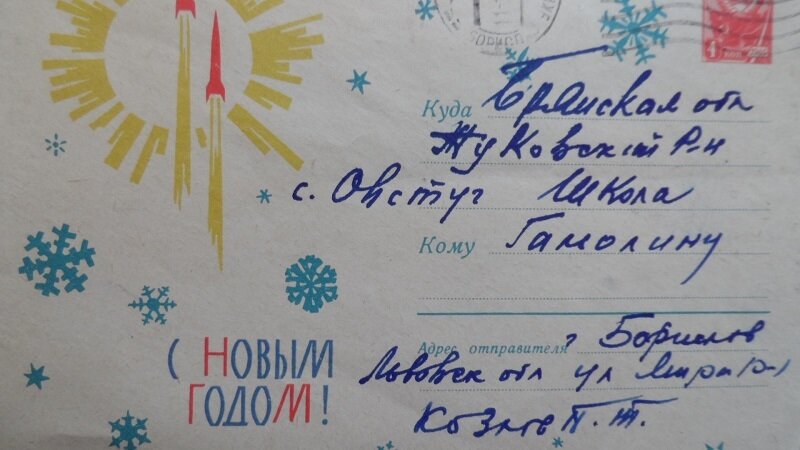 4 коп
Куда Брянская обл
Жуковский р-н
с. Овстуг Школа
Кому Гамолину
Адрес отправителя г Борислов
Львовск обл ул Мира
Козлов П. Т.
С Новым
Годом!